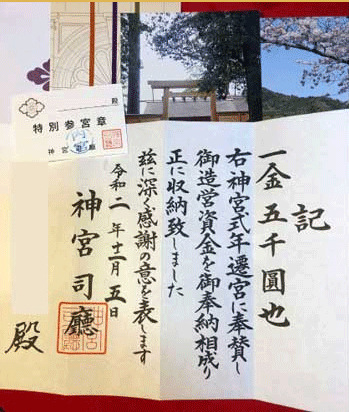 殿
特別参宮章
神宮司廳
記
一金五千圓也
右神宮式年遷宮に奉賛し
御造営資金を御奉納相成り
正に収納致しました
茲に深く感謝の意を表します
令和二年十一月五日
神宮司廳
殿